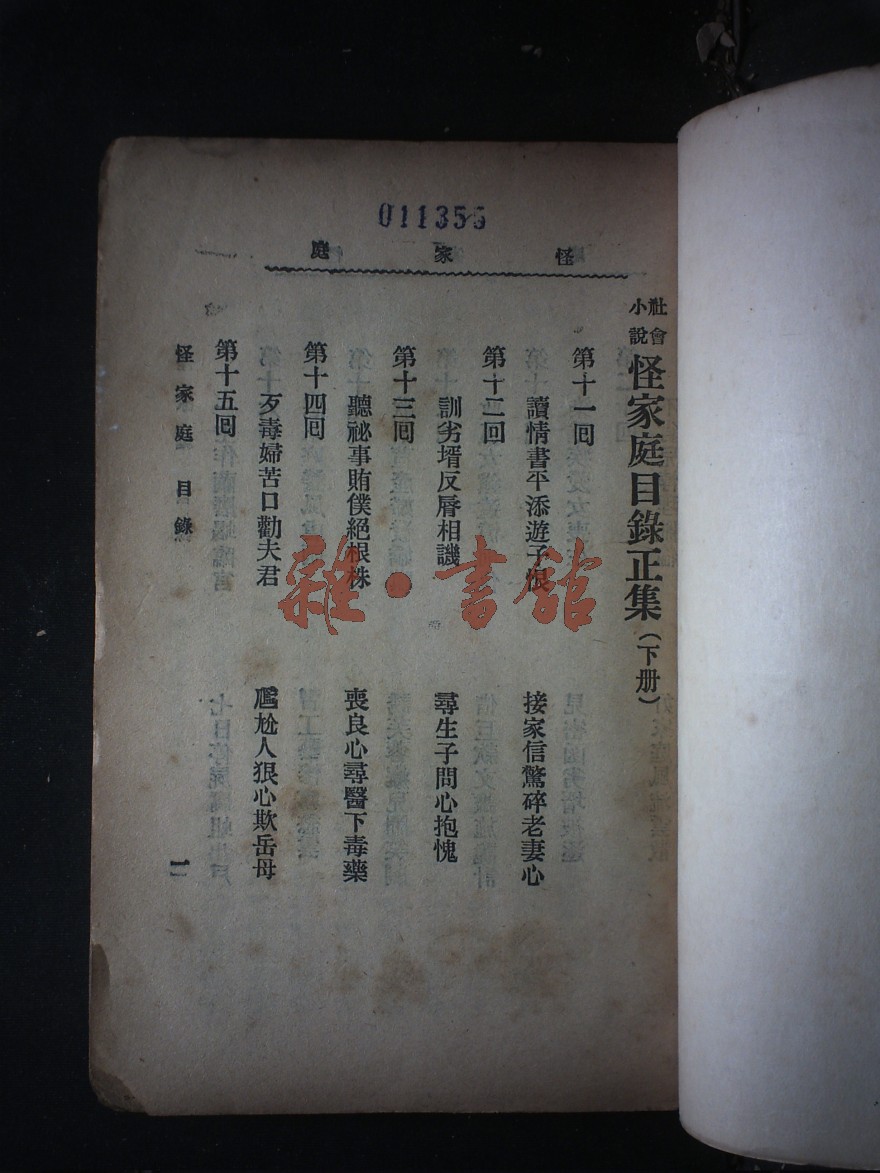 011355
怪家庭
社會小說 怪家庭目錄正集（下册）
第十一囘
讀情書平添遊子恨 接家信驚碎老妻心
第十二回
訓劣壻反脣相譏 尋生子問心抱愧
第十三囘
聽祕事賄僕絕根株 喪良心尋醫下毒藥
第十四囘
歹毒婦苦口勸夫君 尶尬人狠心欺岳母
第十五囘
怪家庭 目錄
雜·書館